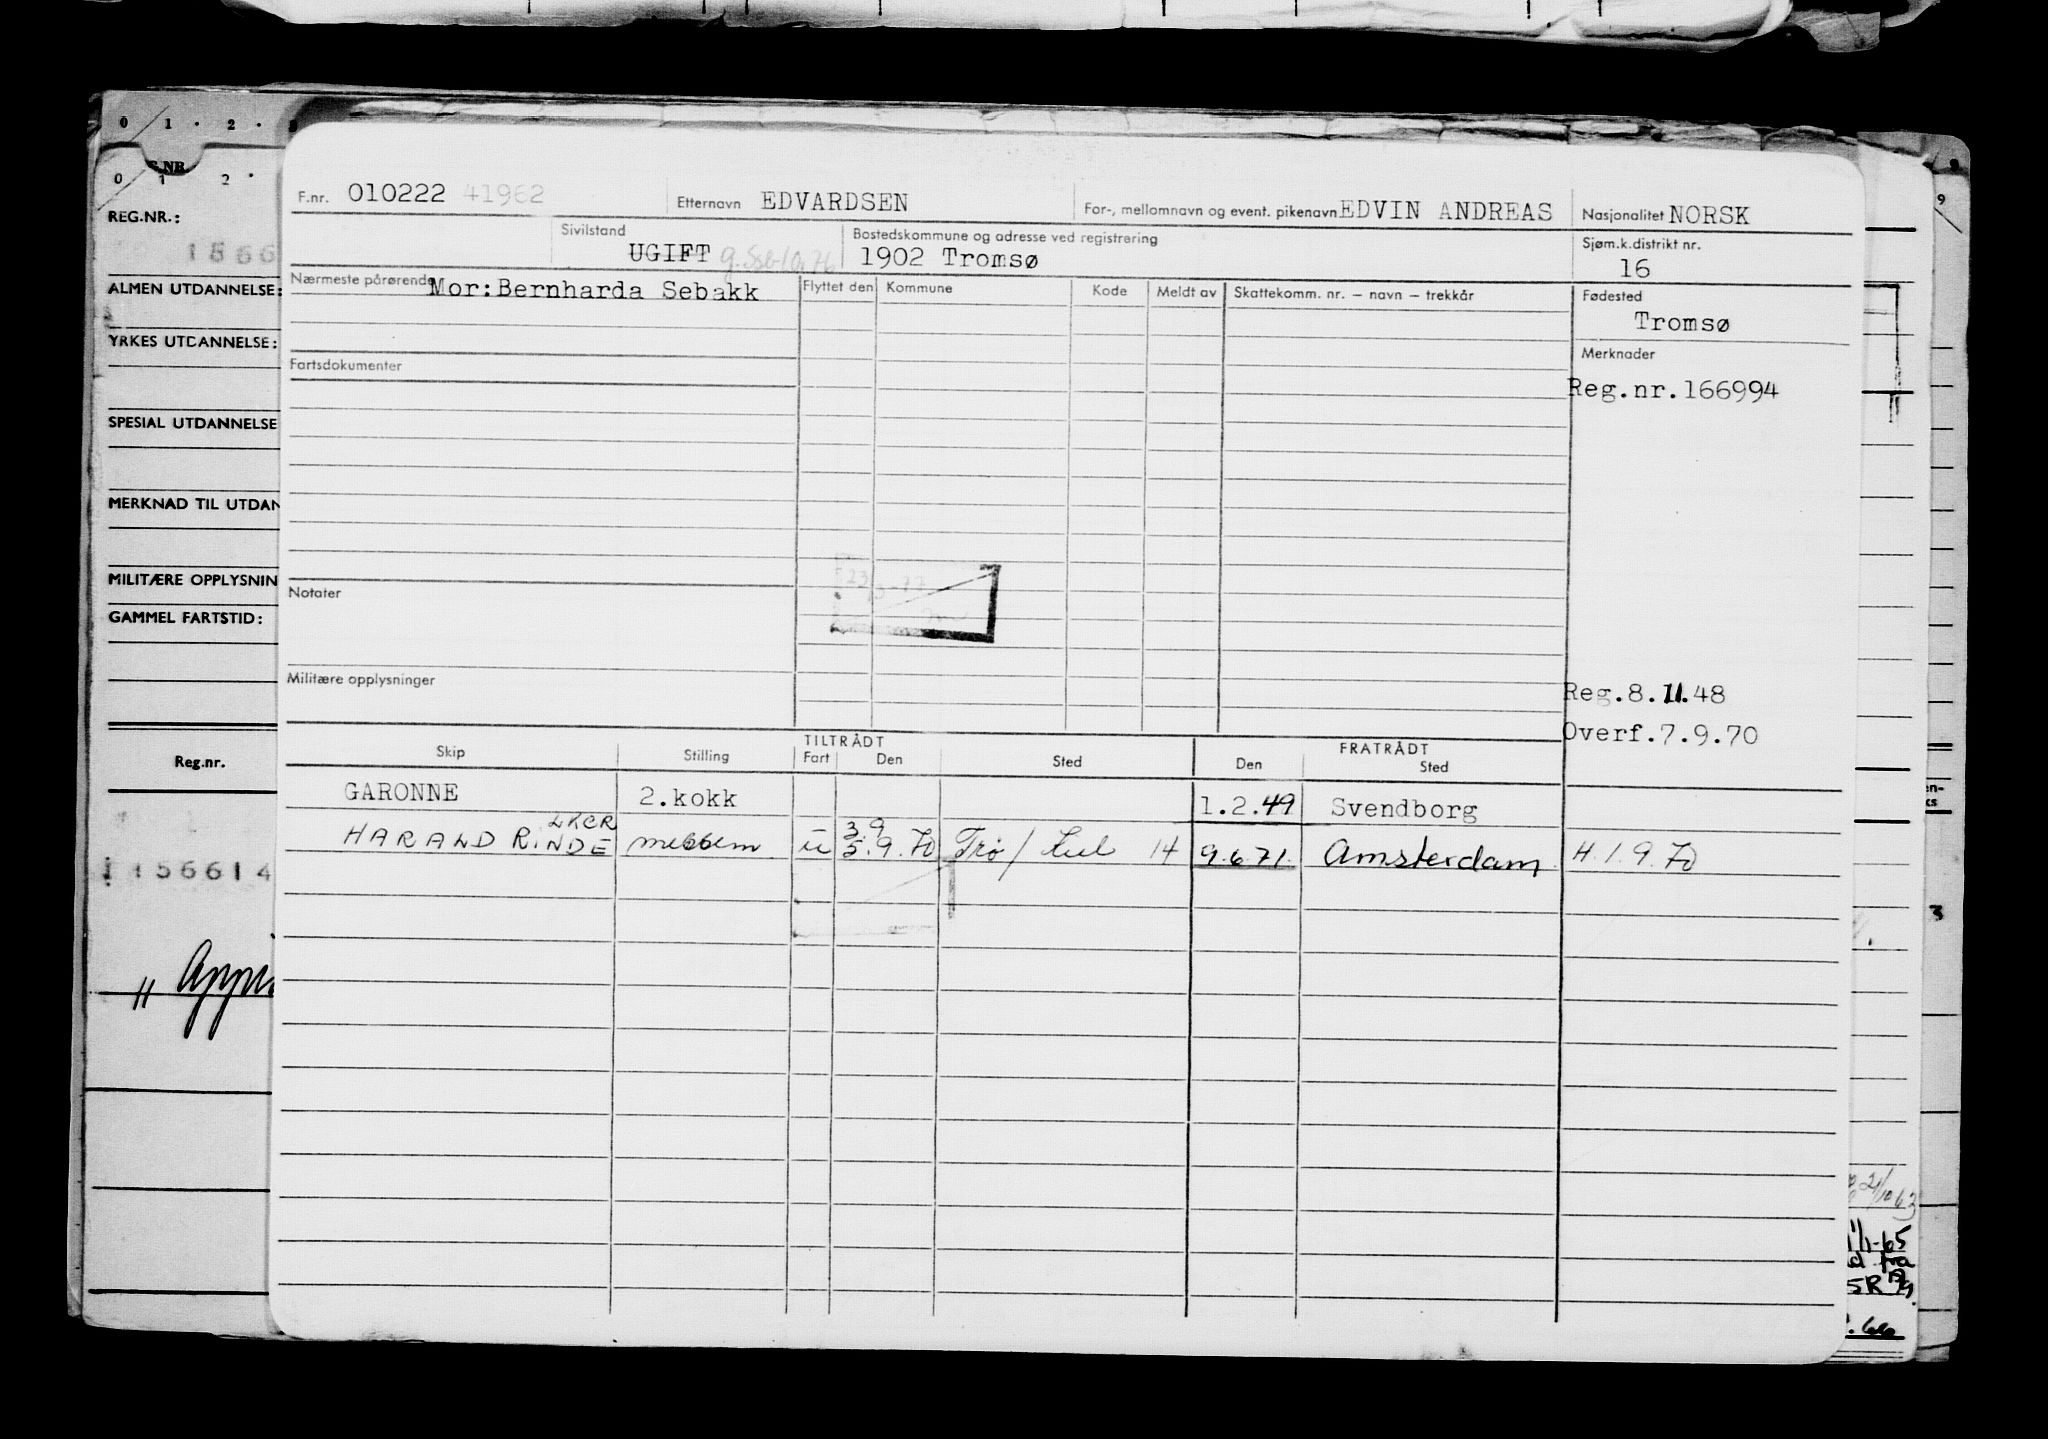 0 1 . 2 .
S.NR.
0 1 2 .
9
REG.NR.:
1566
ALMEN UTDANNELSE:
YRKES UTDANNELSE:
SPESIAL UTDANNELSE
MERKNAD TIL UTDAN
MILITÆRE OPPLYSNIN
GAMMEL FARTSTID:
Reg.nr.
156614
F.nr. 010222 41962 Etternavn EDVARDSEN For-, mellomnavn og event. pikenavn EDVIN ANDREAS Nasjonalitet NORSK
Sivilstand UGIFT Bostedskommune og adresse ved registrering 1902 Tromsø Sjøm.k.distrikt nr. 16
Nærmeste pårørende Mor:Bernharda Sebakk Flyttet den Kommune Kode Meldt av Skattekomm. nr. – navn – trekkår Fødested
Tromsø
Fartsdokumenter
Merknader
Reg.nr.166994
23/3-77
Notater
Militære opplysninger
Reg.8.11.48
Overf.7.9.70
TILTRÅDT FRATRÅDT
Skip Stilling Fart Den Sted Den Sted
GARONNE 2.kokk 1.2.49 Svendborg
LKCR 3.9
HARALD RINDE u 5.9.70 Trø/ 14 9.6.71. Amsterdam H.1.9.70
3
21/10 63
1/1-65
fra
5R
.66